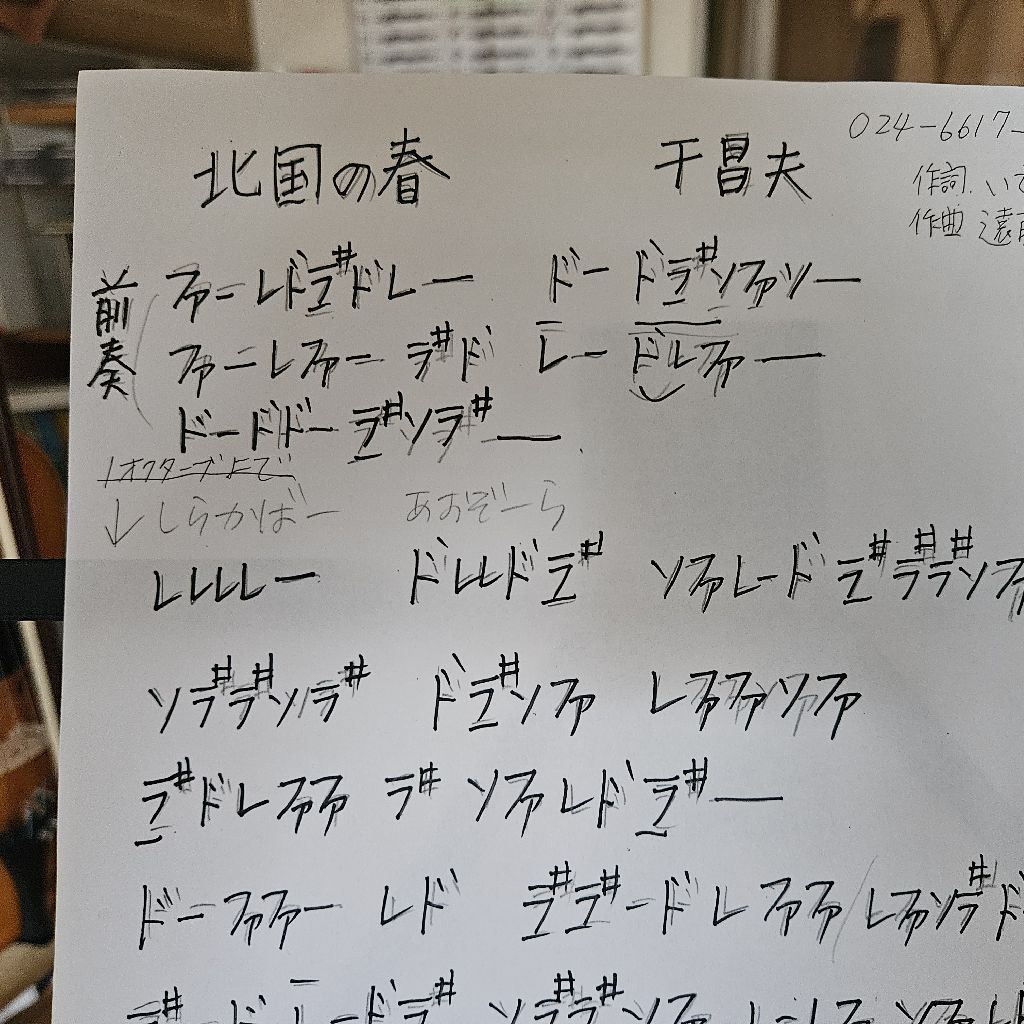 北国の春 千昌夫
024-6617-
作詞 いで
作曲 遠
前奏
ファーレドラ#ドレー ドードラ#ソファソー
ファーレファー ラ#ド レードレファー
ドードドーラ#ソラ#ー
1オクターブ上で
↓しらかばー あおぞーら
レレレレー ドレレドラ# ソファレードラ#ラ#ラ#ソファ
ソラ#ラ#ソラ# ドラ#ソファ レファファソファ
ラ#ドレファファ ラ# ソファレドラ#ー
ドーファファー レド ラ#ラ#ードレファファ/レファソラ#ド